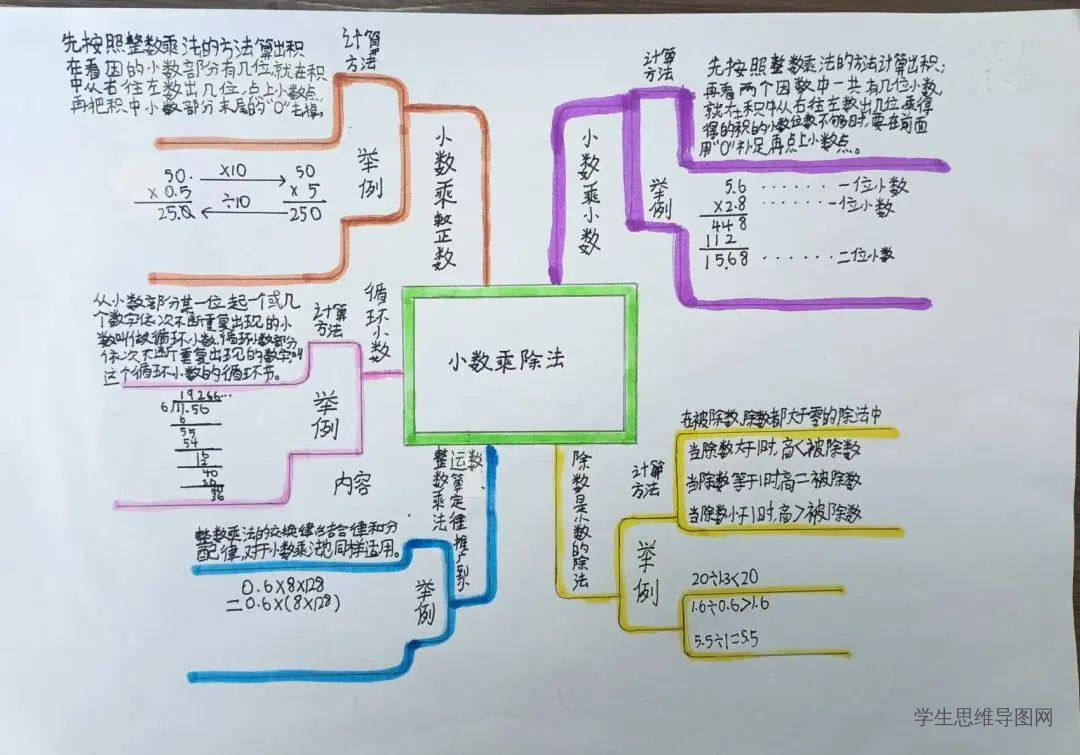 小数乘除法
小数乘整数
计算方法
先按照整数乘法的方法算出积
在看因的小数部分有几位,就在积
中从右往左数出几位,点上小数点,
再把积中小数部分末尾的"0"去掉。
举例
50. ×10 50
× 0.5 × 5
25.0 ÷10 250
小数乘小数
计算方法
先按照整数乘法的方法计算出积;
再看两个因数中一共有几位小数,
就在积中从右往左数出几位,乘得
得的积的小数位数不够时,要在前面
用"0"补足再点上小数点。
举例
5.6 ······· 一位小数
×2.8 ······· 一位小数
448
112
15.68 ······· 二位小数
循环小数
计算方法
从小数部分某一位起一个或几
个数字依次不断重复出现的小
数叫做循环小数。循环小数部分
依次不断重复出现的数字叫
这个循环小数的循环节。
举例
19266···
6 11.56
6
55
54
40
36
内容
整数乘法
运算定律推广到
数
整数乘法的交换律结合律和分
配律,对于小数乘法也同样适用。
举例
0.6×8×128
=0.6×(8×128)
除数是小数的除法
计算方法
在被除数,除数都大于零的除法中
当除数大于1时,商<被除数
当除数等于1时,商=被除数
当除数小于1时,商>被除数
举例
20÷1.3<20
1.6÷0.6>1.6
5.5÷1=5.5
学生思维导图网